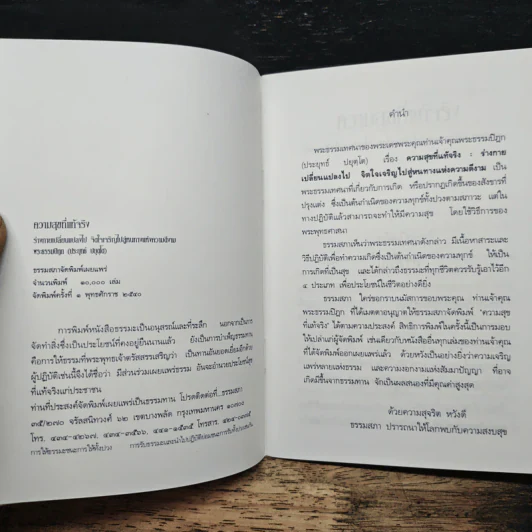 ความสุขที่แท้จริง
ร่างกายเปลี่ยนแปลงไป จิตใจเจริญไปสู่หนทางแห่งความดีงาม
พระธรรมปิฎก (ประยุทธ์ ปยุตฺโต)
ธรรมสภาจัดพิมพ์เผยแพร่
จำนวนพิมพ์ ๑๐,๐๐๐ เล่ม
จัดพิมพ์ครั้งที่ ๑ พุทธศักราช ๒๕๔๐
การพิมพ์หนังสือธรรมะเป็นอนุสรณ์และที่ระลึก นอกจากเป็นการ
จัดทำสิ่งซึ่งเป็นประโยชน์ที่คงอยู่ยืนนานแล้ว ยังเป็นการบำเพ็ญธรรมทาน
คือการให้ธรรมที่พระพุทธเจ้าตรัสสรรเสริญว่า เป็นทานอันยอดเยี่ยมอีกด้วย
ผู้ปฏิบัติเช่นนี้จึงได้ชื่อว่า มีส่วนร่วมเผยแพร่ธรรม อันจะอำนวยประโยชน์สุข
ที่แท้จริงแก่ประชาชน
ท่านที่ประสงค์จัดพิมพ์เผยแพร่เป็นธรรมทาน โปรดติดต่อที่...ธรรมสภา
๓๕/๒๗๐ จรัลสนิทวงศ์ ๖๒ เขตบางพลัด กรุงเทพมหานคร ๑๐๗๐๐
โทร. ๔๓๔-๔๒๖๗, ๔๓๔-๓๕๖๖, ๔๔๑-๑๕๓๕ โทรสาร.
การให้ธรรมะชนะการให้ทั้งปวง การรับธรรมะและนำไปปฏิบัติย่อมชนะการรับทั้งปวงเช่นกัน
คำนำ
พระธรรมเทศนาของพระเดชพระคุณท่านเจ้าคุณพระธรรมปิฎก
(ประยุทธ์ ปยุตฺโต) เรื่อง ความสุขที่แท้จริง : ร่างกาย
เปลี่ยนแปลงไป จิตใจเจริญไปสู่หนทางแห่งความดีงาม เป็น
พระธรรมเทศนาที่เกี่ยวกับการเกิด หรือปรากฏเกิดขึ้นของสังขารที่
ปรุงแต่ง ซึ่งเป็นต้นกำเนิดของความทุกข์ทั้งปวงตามสภาวะ แต่ใน
ทางปฏิบัติแล้วสามารถจะทำให้มีความสุข โดยใช้วิธีการของ
พระพุทธศาสนา
ธรรมสภาเห็นว่าพระธรรมเทศนาดังกล่าว มีเนื้อหาสาระและ
วิธีปฏิบัติเพื่อทำความเกิดซึ่งเป็นต้นกำเนิดของความทุกข์ ให้เป็น
การเกิดที่เป็นสุข และได้กล่าวถึงธรรมะที่ทุกชีวิตควรรับรู้เอาไว้อีก
๔ ประเภท เพื่อประโยชน์ในชีวิตอย่างดียิ่ง
ธรรมสภา ใคร่ขอกราบนมัสการขอบพระคุณ ท่านเจ้าคุณ
พระธรรมปิฎก ที่ได้เมตตาอนุญาตให้ธรรมสภาจัดพิมพ์ "ความสุข
ที่แท้จริง" ได้ตามความประสงค์ สิทธิการพิมพ์ในครั้งนี้เป็นการมอบ
ให้เปล่าแก่ผู้จัดพิมพ์ เช่นเดียวกับหนังสืออื่นทุกเล่มของท่านเจ้าคุณ
ที่ได้จัดพิมพ์ออกเผยแพร่แล้ว ด้วยหวังเป็นอย่างยิ่งว่าความเจริญ
แพร่หลายแห่งธรรม และความงอกงามแห่งสัมมาปัญญา ที่อาจ
เกิดมีขึ้นจากธรรมทาน จักเป็นผลสนองที่มีคุณค่าสูงสุด
ด้วยความสุจริต หวังดี
ธรรมสภา ปรารถนาให้โลกพบกับความสงบสุข